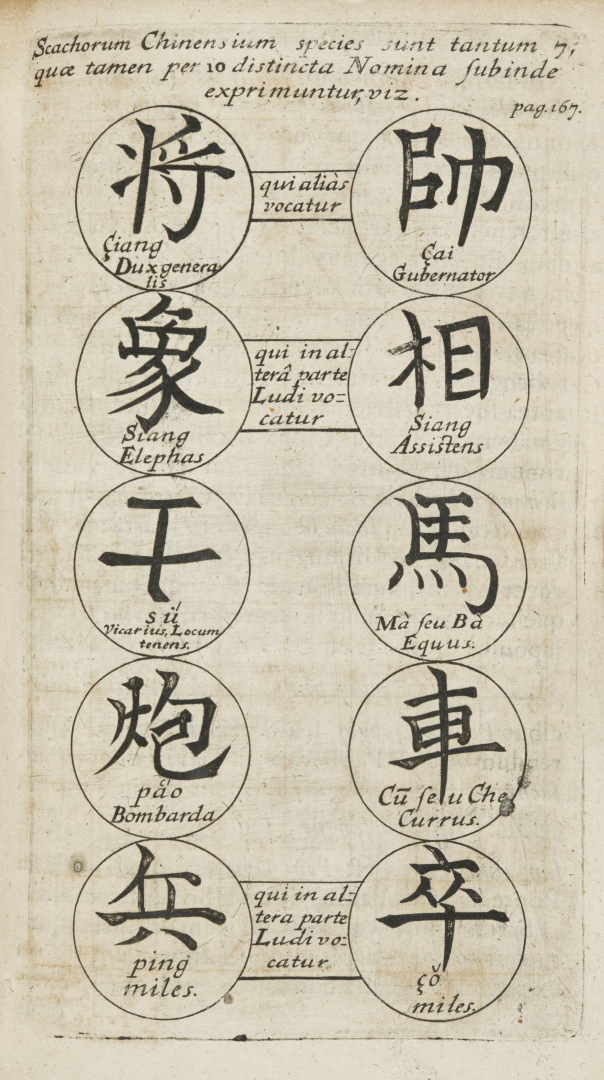 Scachorum Chinensium species sunt tantum 7;
quæ tamen per 10 distincta Nomina ſubinde
exprimuntur, viz.
pag. 167.
将
Çiang
Dux genera
lis
qui aliàs
vocatur
帥
Çai
Gubernator
象
Siang
Elephas
qui in al=
terâ parte
Ludi vo=
catur
相
Siang
Assistens
干
sú
Vicarius, Locum
tenens.
馬
Mà ſeu Bà
Equus.
炮
páo
Bombarda
車
Cū ſeu Che
Currus.
兵
ping
miles.
qui in al=
tera parte
Ludi vo=
catur
卒
çŏ
miles.